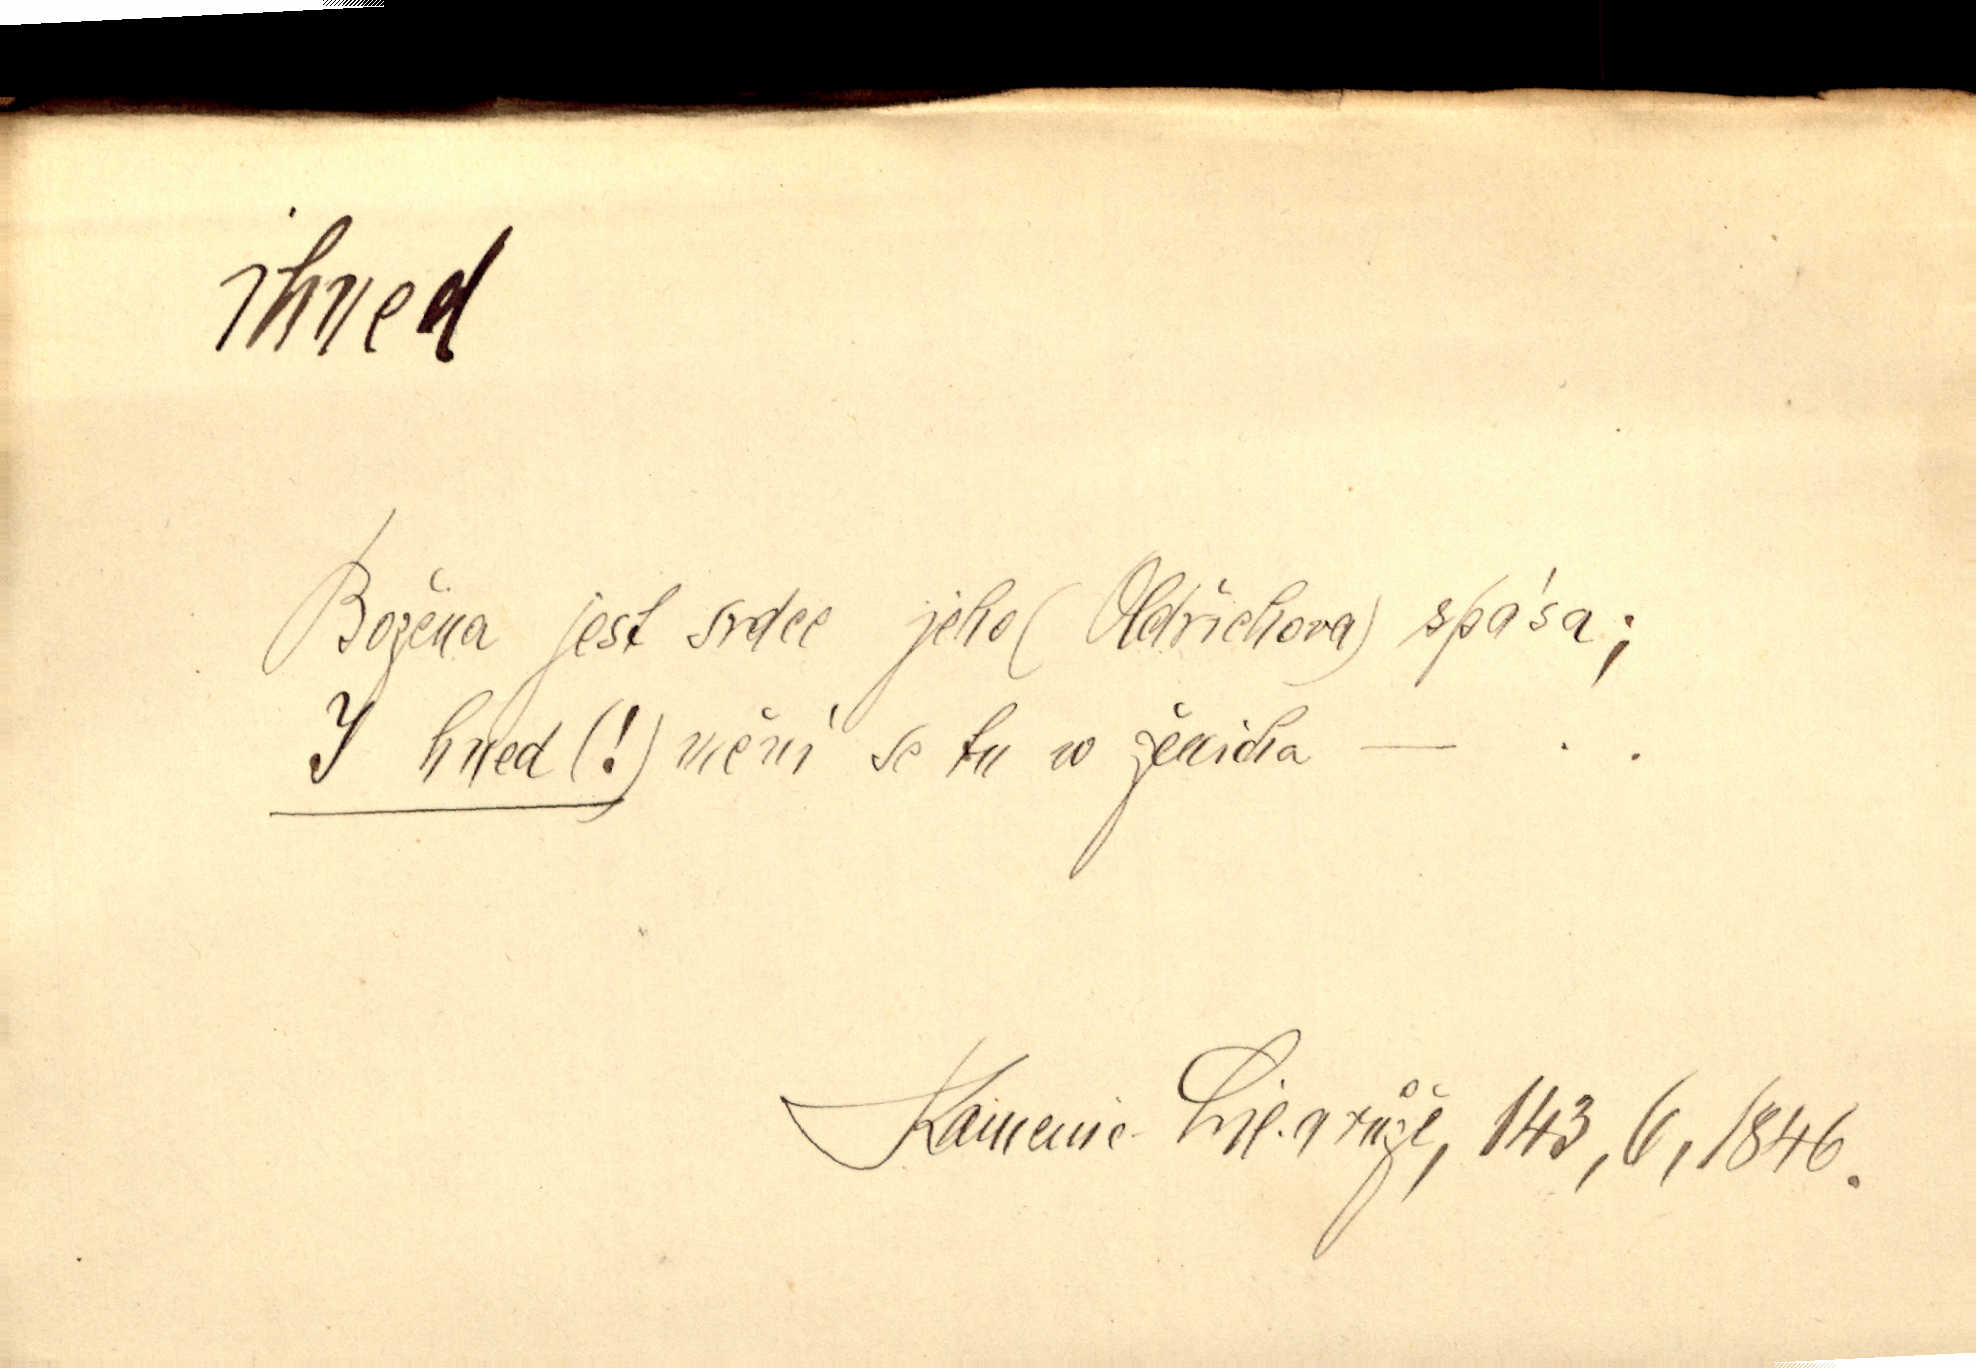 ihned
Božena jest srdce jeho (Oldřichova) spása;
I hned (!) mění se tu w ženicha — . .
Kamenic. Lil. a růže, 143, 6, 1846.